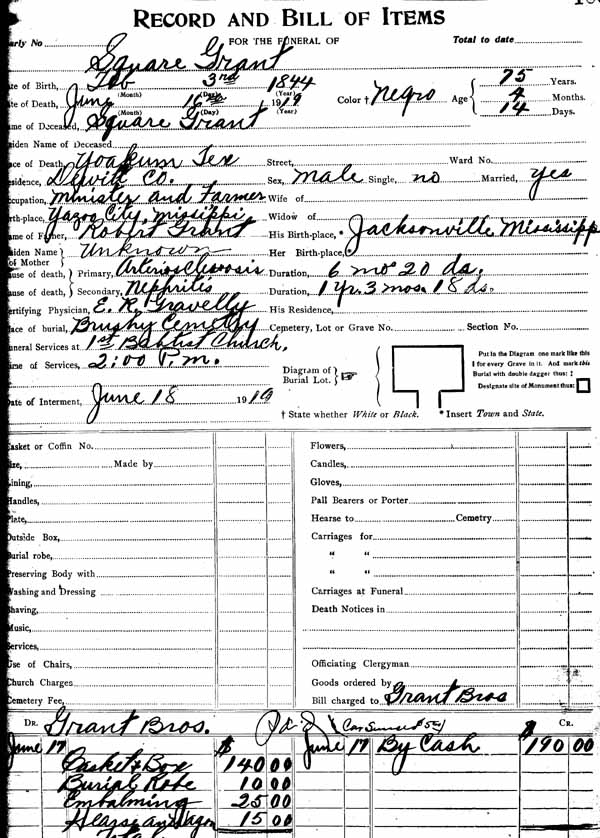 RECORD AND BILL OF ITEMS
early No FOR THE FUNERAL OF Total to date
Square Grant
ate of Birth, Feb 3rd 1844 75 Years.
(Month) (Day) (Year)
ate of Death, June 16 1919 Color † Negro Age 4 Months.
(Month) (Day) (Year) 14 Days.
ame of Deceased, Square Grant
aiden Name of Deceased
ace of Death, Yoakum Tex Street, Ward No.
esidence, Dewitt Co. Sex, male Single, no Married, yes
ccupation, Minister and Farmer Wife of
irth-place, Yazoo City, Missippi Widow of
ame of Father, Robert Grant His Birth-place, * Jacksonville Mississipp
aiden Name of Mother Unknown Her Birth-place
ause of death, Primary, Arteriosclerosis Duration, 6 mo 20 ds.
ause of death, Secondary, Nephritis Duration, 1 yr. 3 mos. 18 ds.
ertifying Physician, E. R. Gravelly His Residence,
ace of burial, Brushy Cemetery Cemetery, Lot or Grave No. Section No.
uneral Services at 1st Baptist Church,
ime of Services, 2:00 P.m.
Diagram of Burial Lot. ☞
Put in the Diagram one mark like this
† for every Grave in it. And mark this
Burial with double dagger thus: ‡
Designate site of Monument thus: □
Date of Interment, June 18 1919
† State whether White or Black. * Insert Town and State.
Casket or Coffin No. Flowers,
Size, Made by Candles,
Lining, Gloves,
Handles, Pall Bearers or Porter
Plate, Hearse to Cemetry
Outside Box, Carriages for
Burial robe, " "
Preserving Body with " "
Washing and Dressing Carriages at Funeral
Shaving, Death Notices in
Music,
Services,
Use of Chairs, Officiating Clergyman
Church Charges Goods ordered by
Cemetery Fee, Bill charged to Grant Bros
DR. Grant Bros. CR.
June 17 $ June 17 By Cash $ 190 00
Casket & Box 140 00
Burial Robe 10 00
Embalming 25 00
Hearse and wagon 15 00
Total